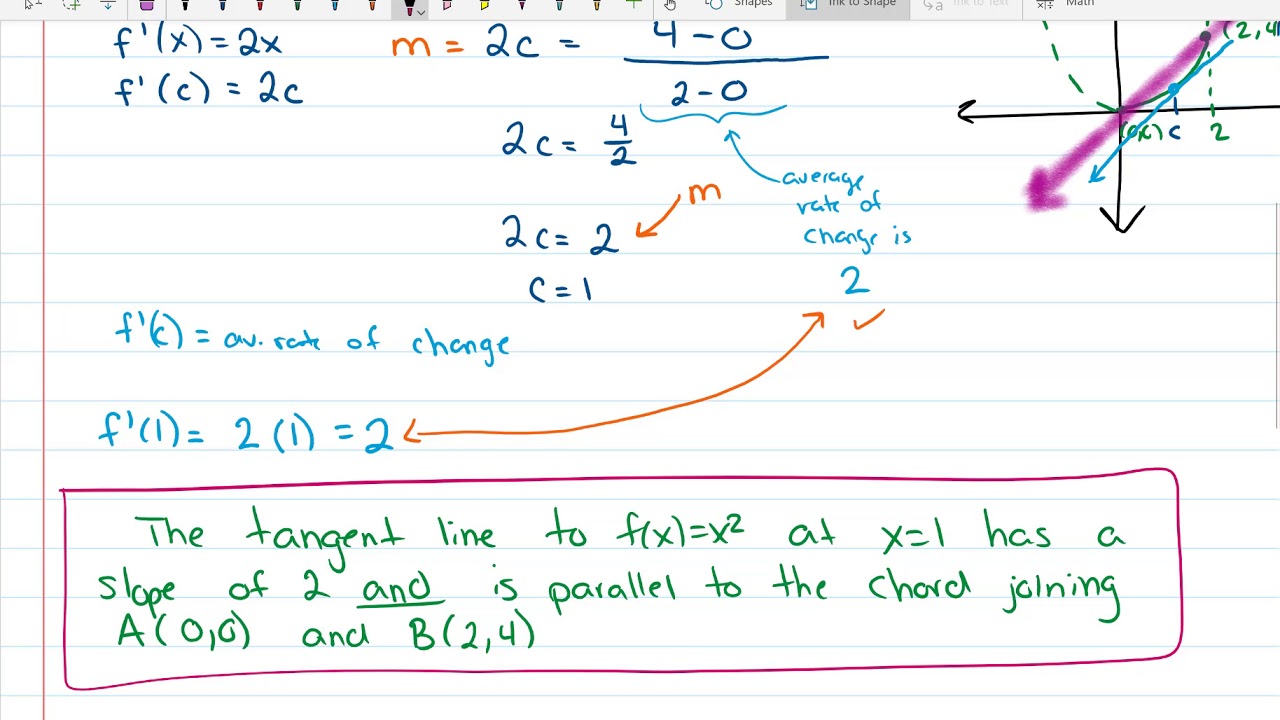 Shapes Ink to Shape Ink to Text Math
f'(x) = 2x
m = 2c = 4 - 0
2 - 0
f'(c) = 2c
2c = 4/2
m
2c = 2
c = 1
average
rate of
change is
2 ✓
(2,4
c 2
f'(c) = av. rate of change
f'(1) = 2(1) = 2
The tangent line to f(x)=x² at x=1 has a
slope of 2 and is parallel to the chord joining
A(0,0) and B(2,4)